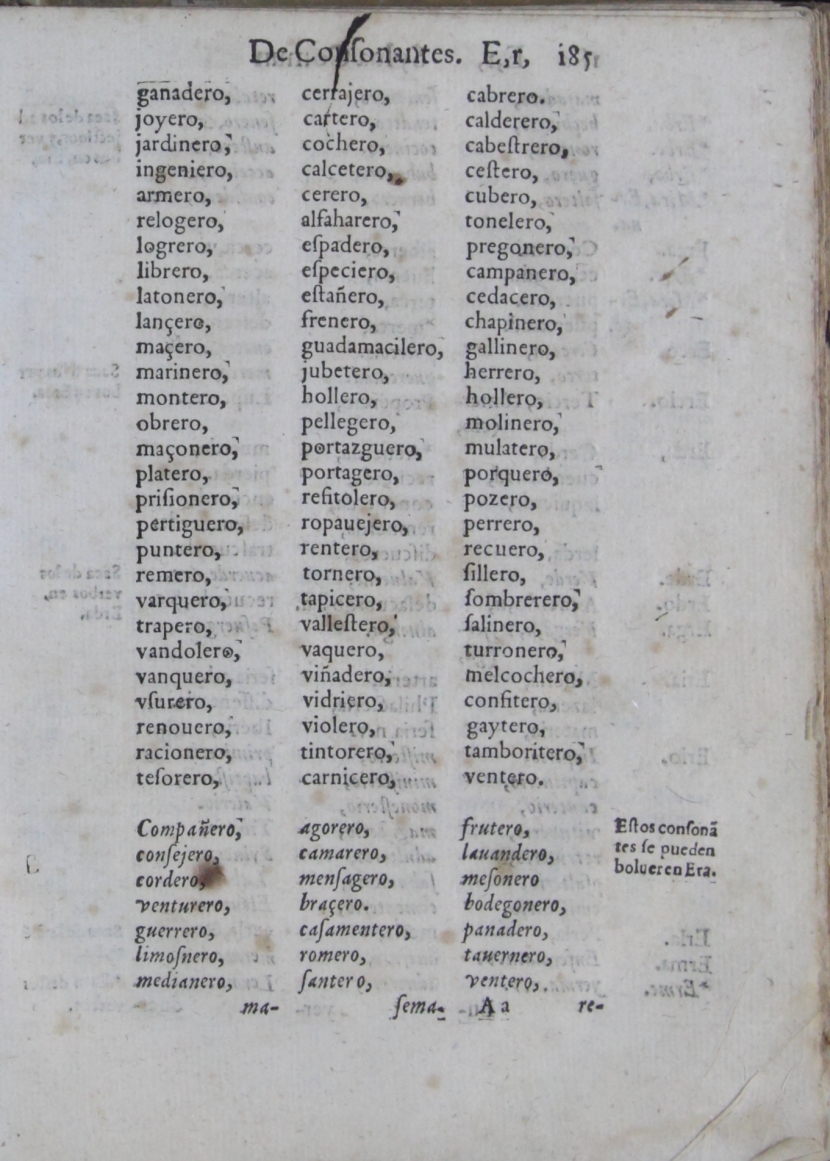 De Conſonantes. E,r, 185
ganadero,
joyero,
jardinero,
ingeniero,
armero,
relogero,
logrero,
librero,
latonero,
lançero,
maçero,
marinero,
montero,
obrero,
maçonero,
platero,
priſionero,
pertiguero,
puntero,
remero,
varquero,
trapero,
vandolero,
vanquero,
vſurero,
renouero,
racionero,
teſorero,
cerrajero,
cartero,
cochero,
calcetero,
cerero,
alfaharero,
eſpadero,
eſpeciero,
eſtañero,
frenero,
guadamacilero,
jubetero,
hollero,
pellegero,
portazguero,
portagero,
refitolero,
ropauejero,
rentero,
tornero,
tapicero,
valleſtero,
vaquero,
viñadero,
vidriero,
violero,
tintorero,
carnicero,
cabrero.
calderero,
cabeſtrero,
ceſtero,
cubero,
tonelero,
pregonero,
campanero,
cedacero,
chapinero,
gallinero,
herrero,
hollero,
molinero,
mulatero,
porquero,
pozero,
perrero,
recuero,
ſillero,
ſombrerero,
ſalinero,
turronero,
melcochero,
confitero,
gaytero,
tamboritero,
ventero.
Compañero,
conſejero,
cordero,
venturero,
guerrero,
limoſnero,
medianero,
ma-
agorero,
camarero,
menſagero,
braçero.
caſamentero,
romero,
ſantero,
ſema-
frutero,
lauandero,
meſonero
bodegonero,
panadero,
tauernero,
ventero,
Aa re-
Eſtos conſonã
tes ſe pueden
boluer en Era.